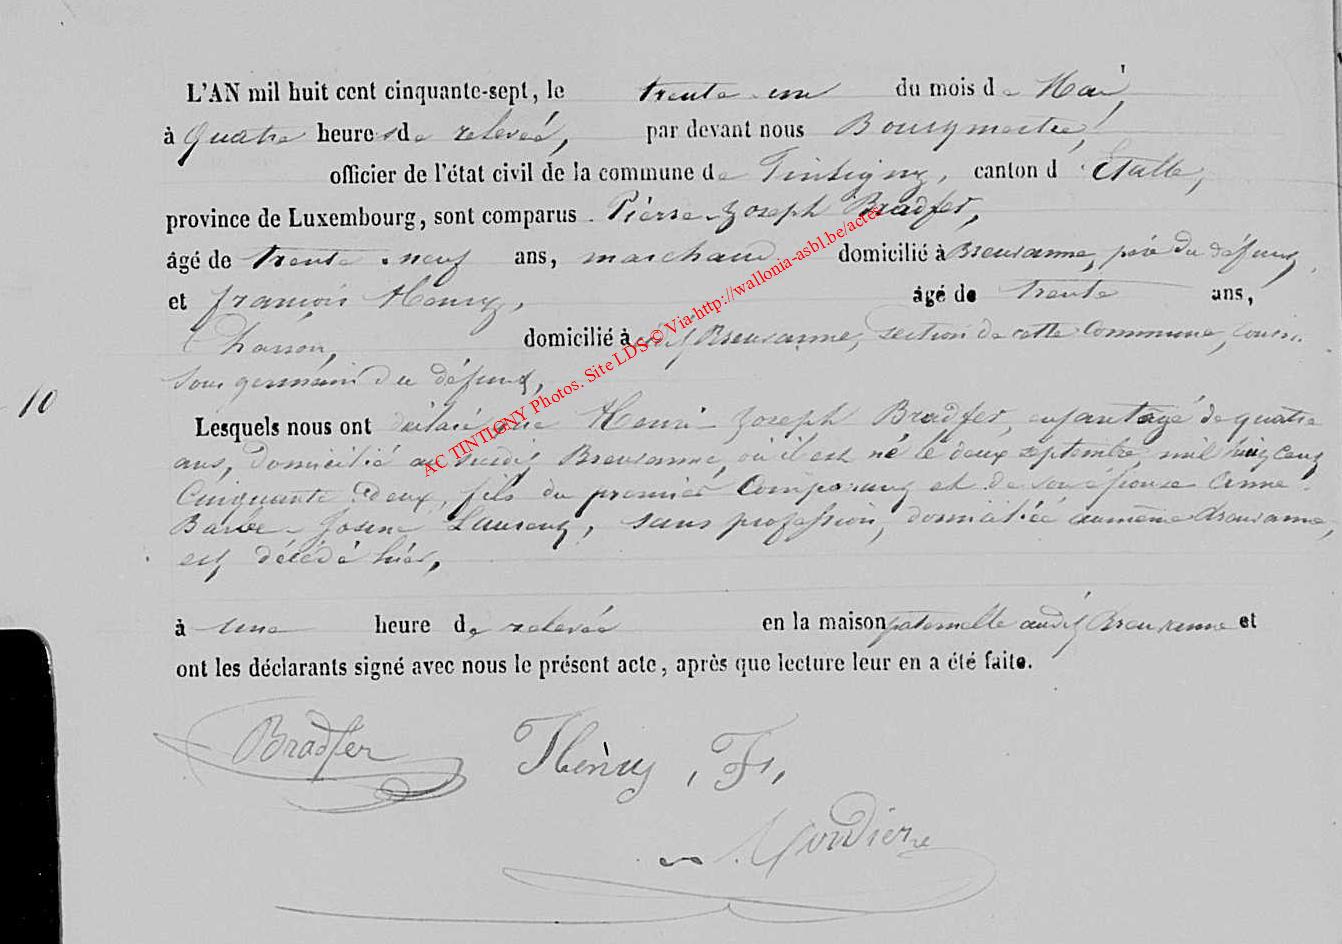 L'AN mil huit cent cinquante-sept, le trente-un du mois de Mai,
à quatre heures de relevée, par devant nous Bourgmestre,
officier de l'état civil de la commune de Tintigny, canton d'Etalle,
province de Luxembourg, sont comparus Pierre-Joseph Bradfer,
âgé de trente-neuf ans, marchand domicilié à Breuvanne, père du défunt,
et françois Henry, âgé de trente ans,
Charron, domicilié à Breuvanne, section de cette Commune, cousin
sous germain du défunt,
10
Lesquels nous ont déclaré que Henri-Joseph Bradfer, enfant âgé de quatre
ans, domicilié au susdit Breuvanne, où il est né le deux septembre mil huit cent
Cinquante-deux, fils du premier Comparant et de son épouse Anne-
Barbe Laurent, sans profession, domiciliée au même Breuvanne,
est décédé hier,
à une heure de relevée en la maison paternelle audit Breuvanne et
ont les déclarants signé avec nous le présent acte, après que lecture leur en a été faite.
Bradfer Henry, F,
AC TINTIGNY Photos. Site LDS © Via-http://wallonia-asbl.be/actes